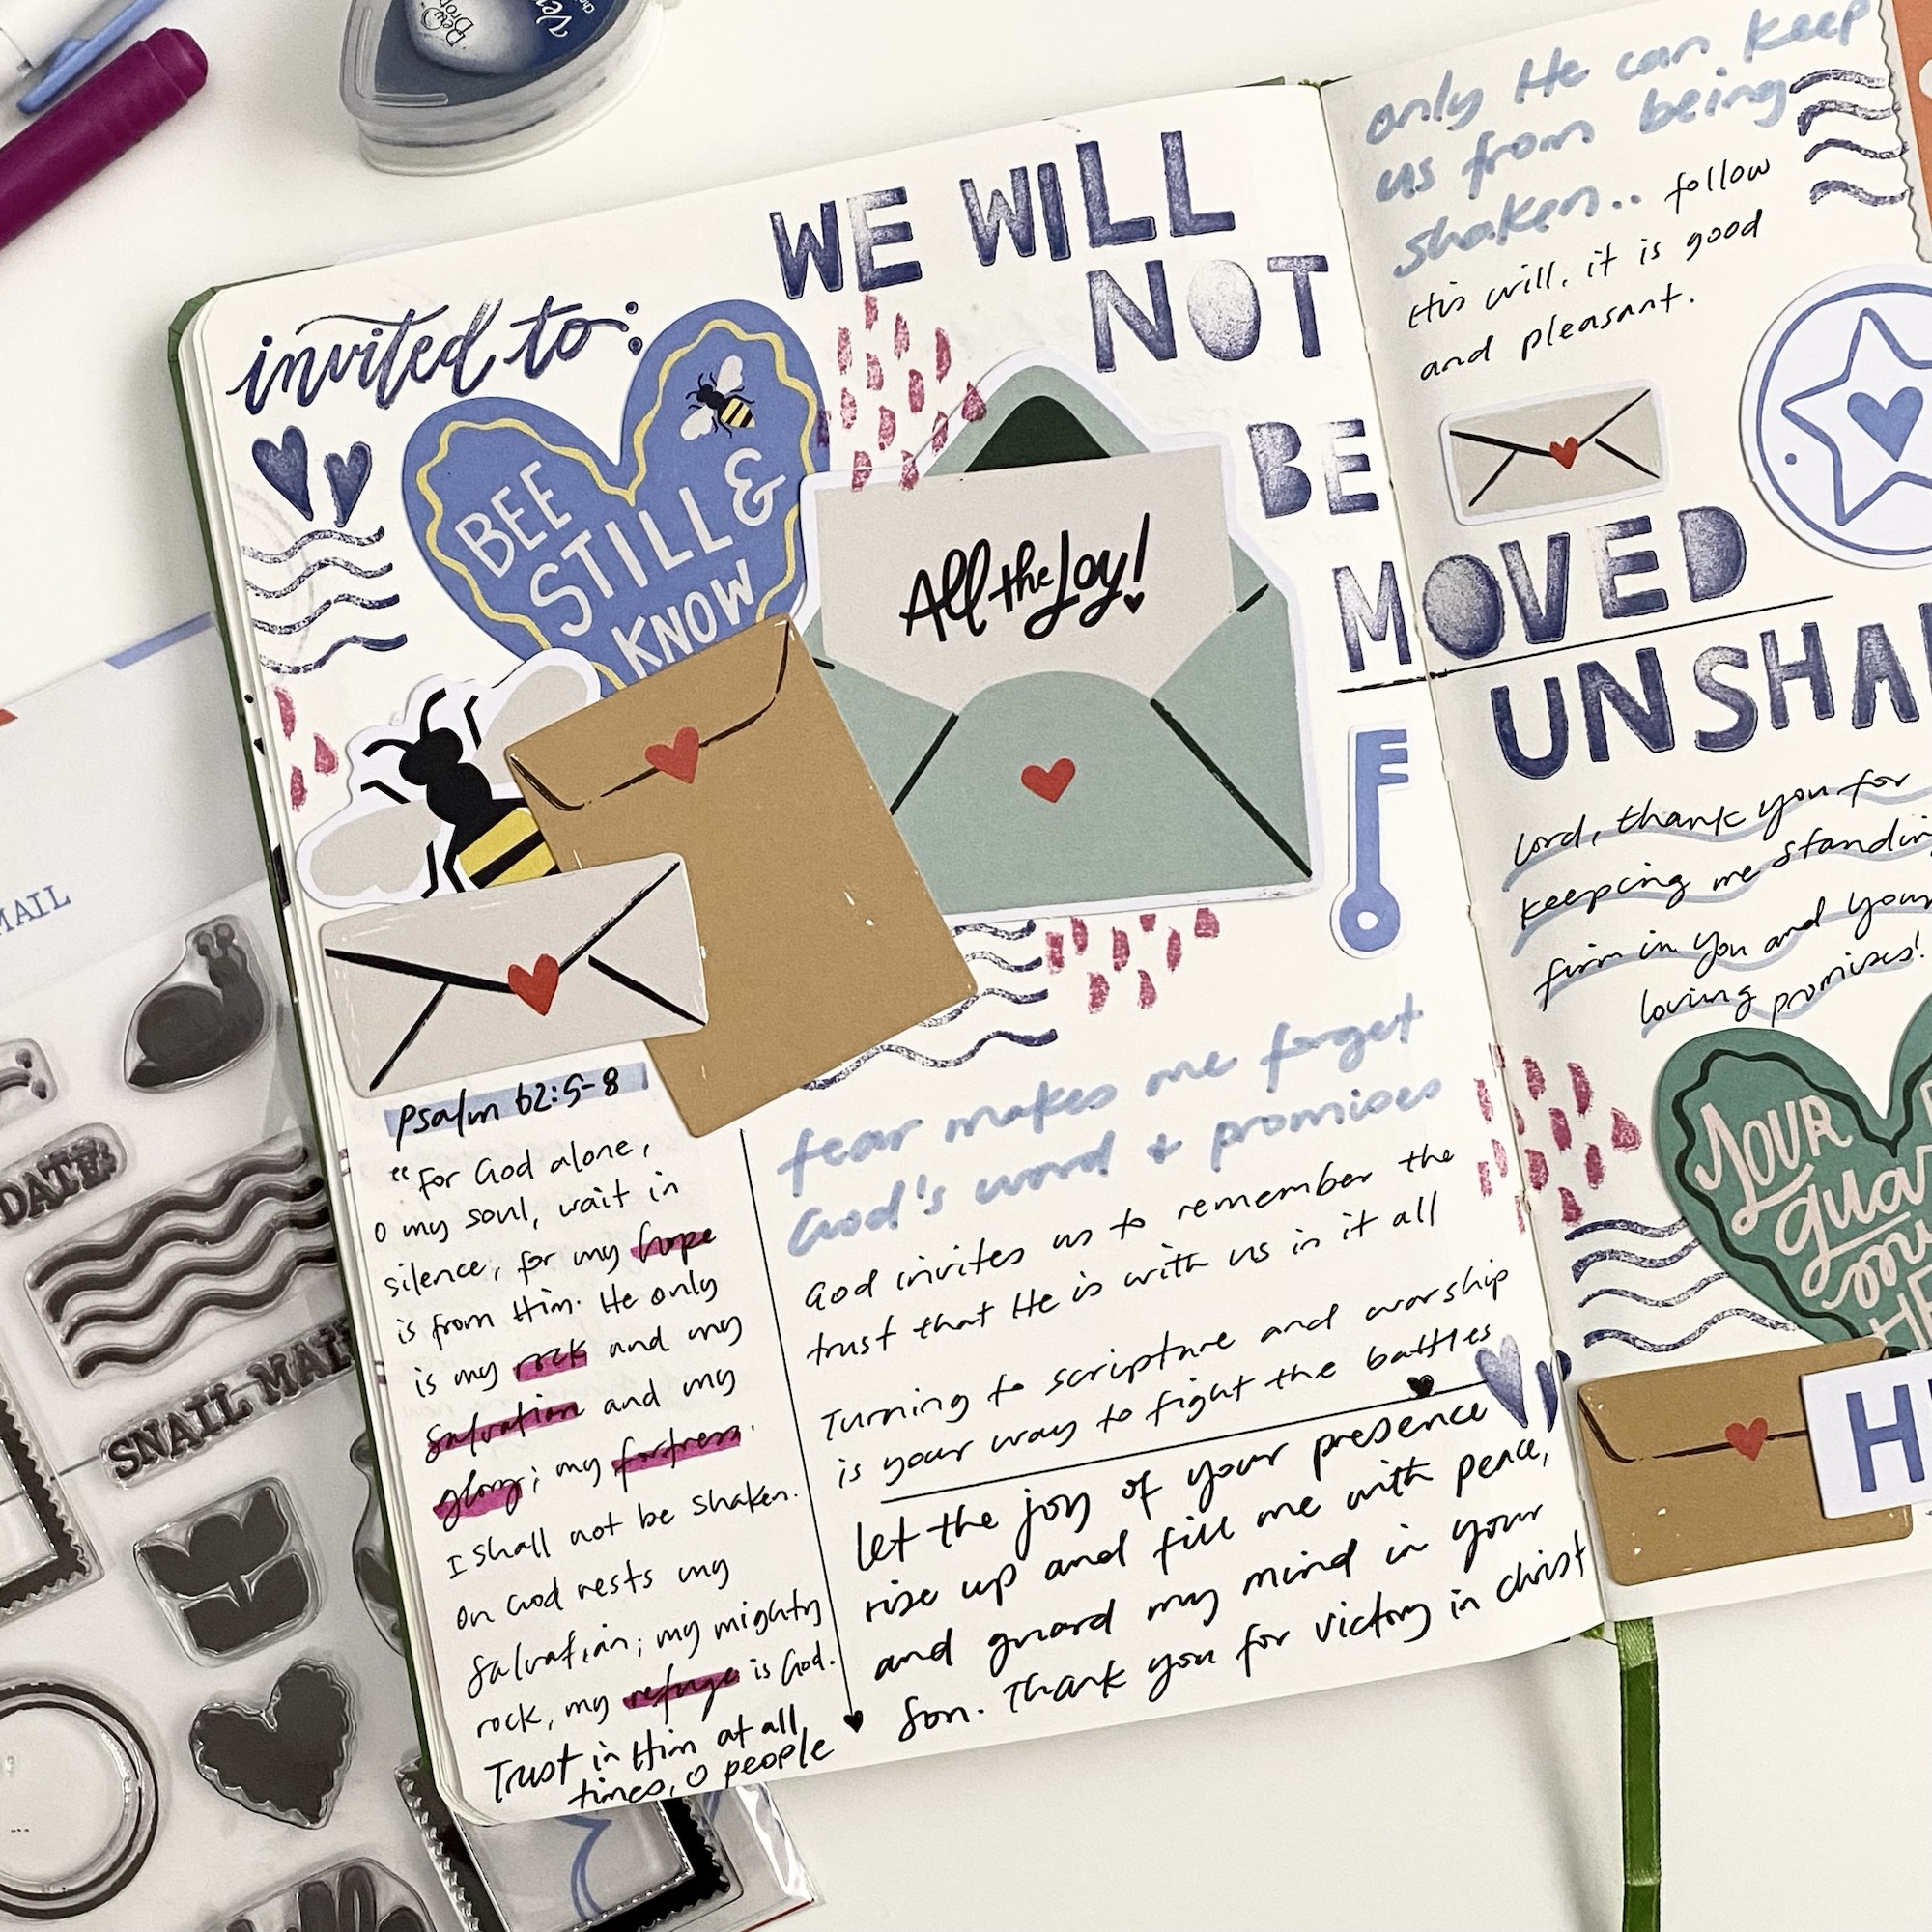 invited to:
WE WILL
NOT
BE
MOVED
UNSHA
BEE
STILL &
KNOW
All the Joy!
Psalm 62:5-8
"For God alone,
O my soul, wait in
silence, for my hope
is from Him. He only
is my rock and my
salvation and my
glory; my fortress.
I shall not be shaken.
On God rests my
salvation; my mighty
rock, my refuge is God.
Trust in Him at all
times, O people
fear makes me forget
God's word + promises
God invites us to remember the
trust that He is with us in it all
Turning to scripture and worship
is your way to fight the battles
let the joy of your presence
rise up and fill me with peace,
and guard my mind in your
Son. Thank you for victory in christ
only He can keep
us from being
shaken.. follow
His will, it is good
and pleasant.
Lord, thank you for
keeping me standin
firm in you and your
loving promises!
YOUR
gua
H
MAIL
DATE:
SNAIL MAI
Dew
Drop